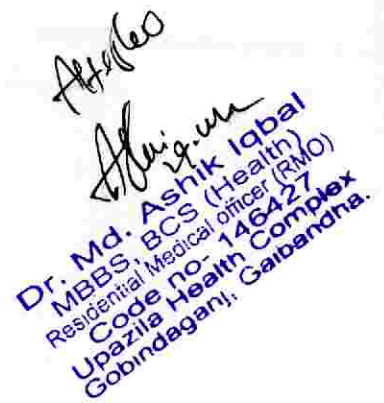 Attested
Dr. Md. Ashik Iqbal
MBBS, BCS (Health)
Residential Medical officer (RMO)
Code no- 146427
Upazila Health Complex
Gobindaganj, Gaibandha.